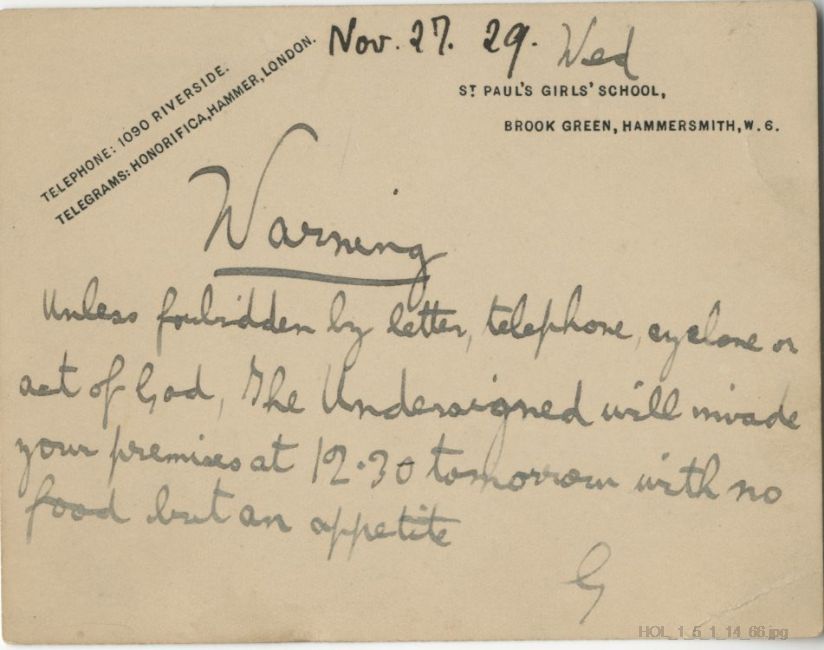 Nov. 27. 29. Wed
TELEPHONE: 1090 RIVERSIDE.
TELEGRAMS: HONORIFICA, HAMMER, LONDON.
ST PAUL'S GIRLS' SCHOOL,
BROOK GREEN, HAMMERSMITH, W. 6.
Warning
Unless forbidden by letter, telephone, cyclone or
act of God, The Undersigned will invade
your premises at 12.30 tomorrow with no
food but an appetite
G
HOL_1_5_1_14_66.jpg